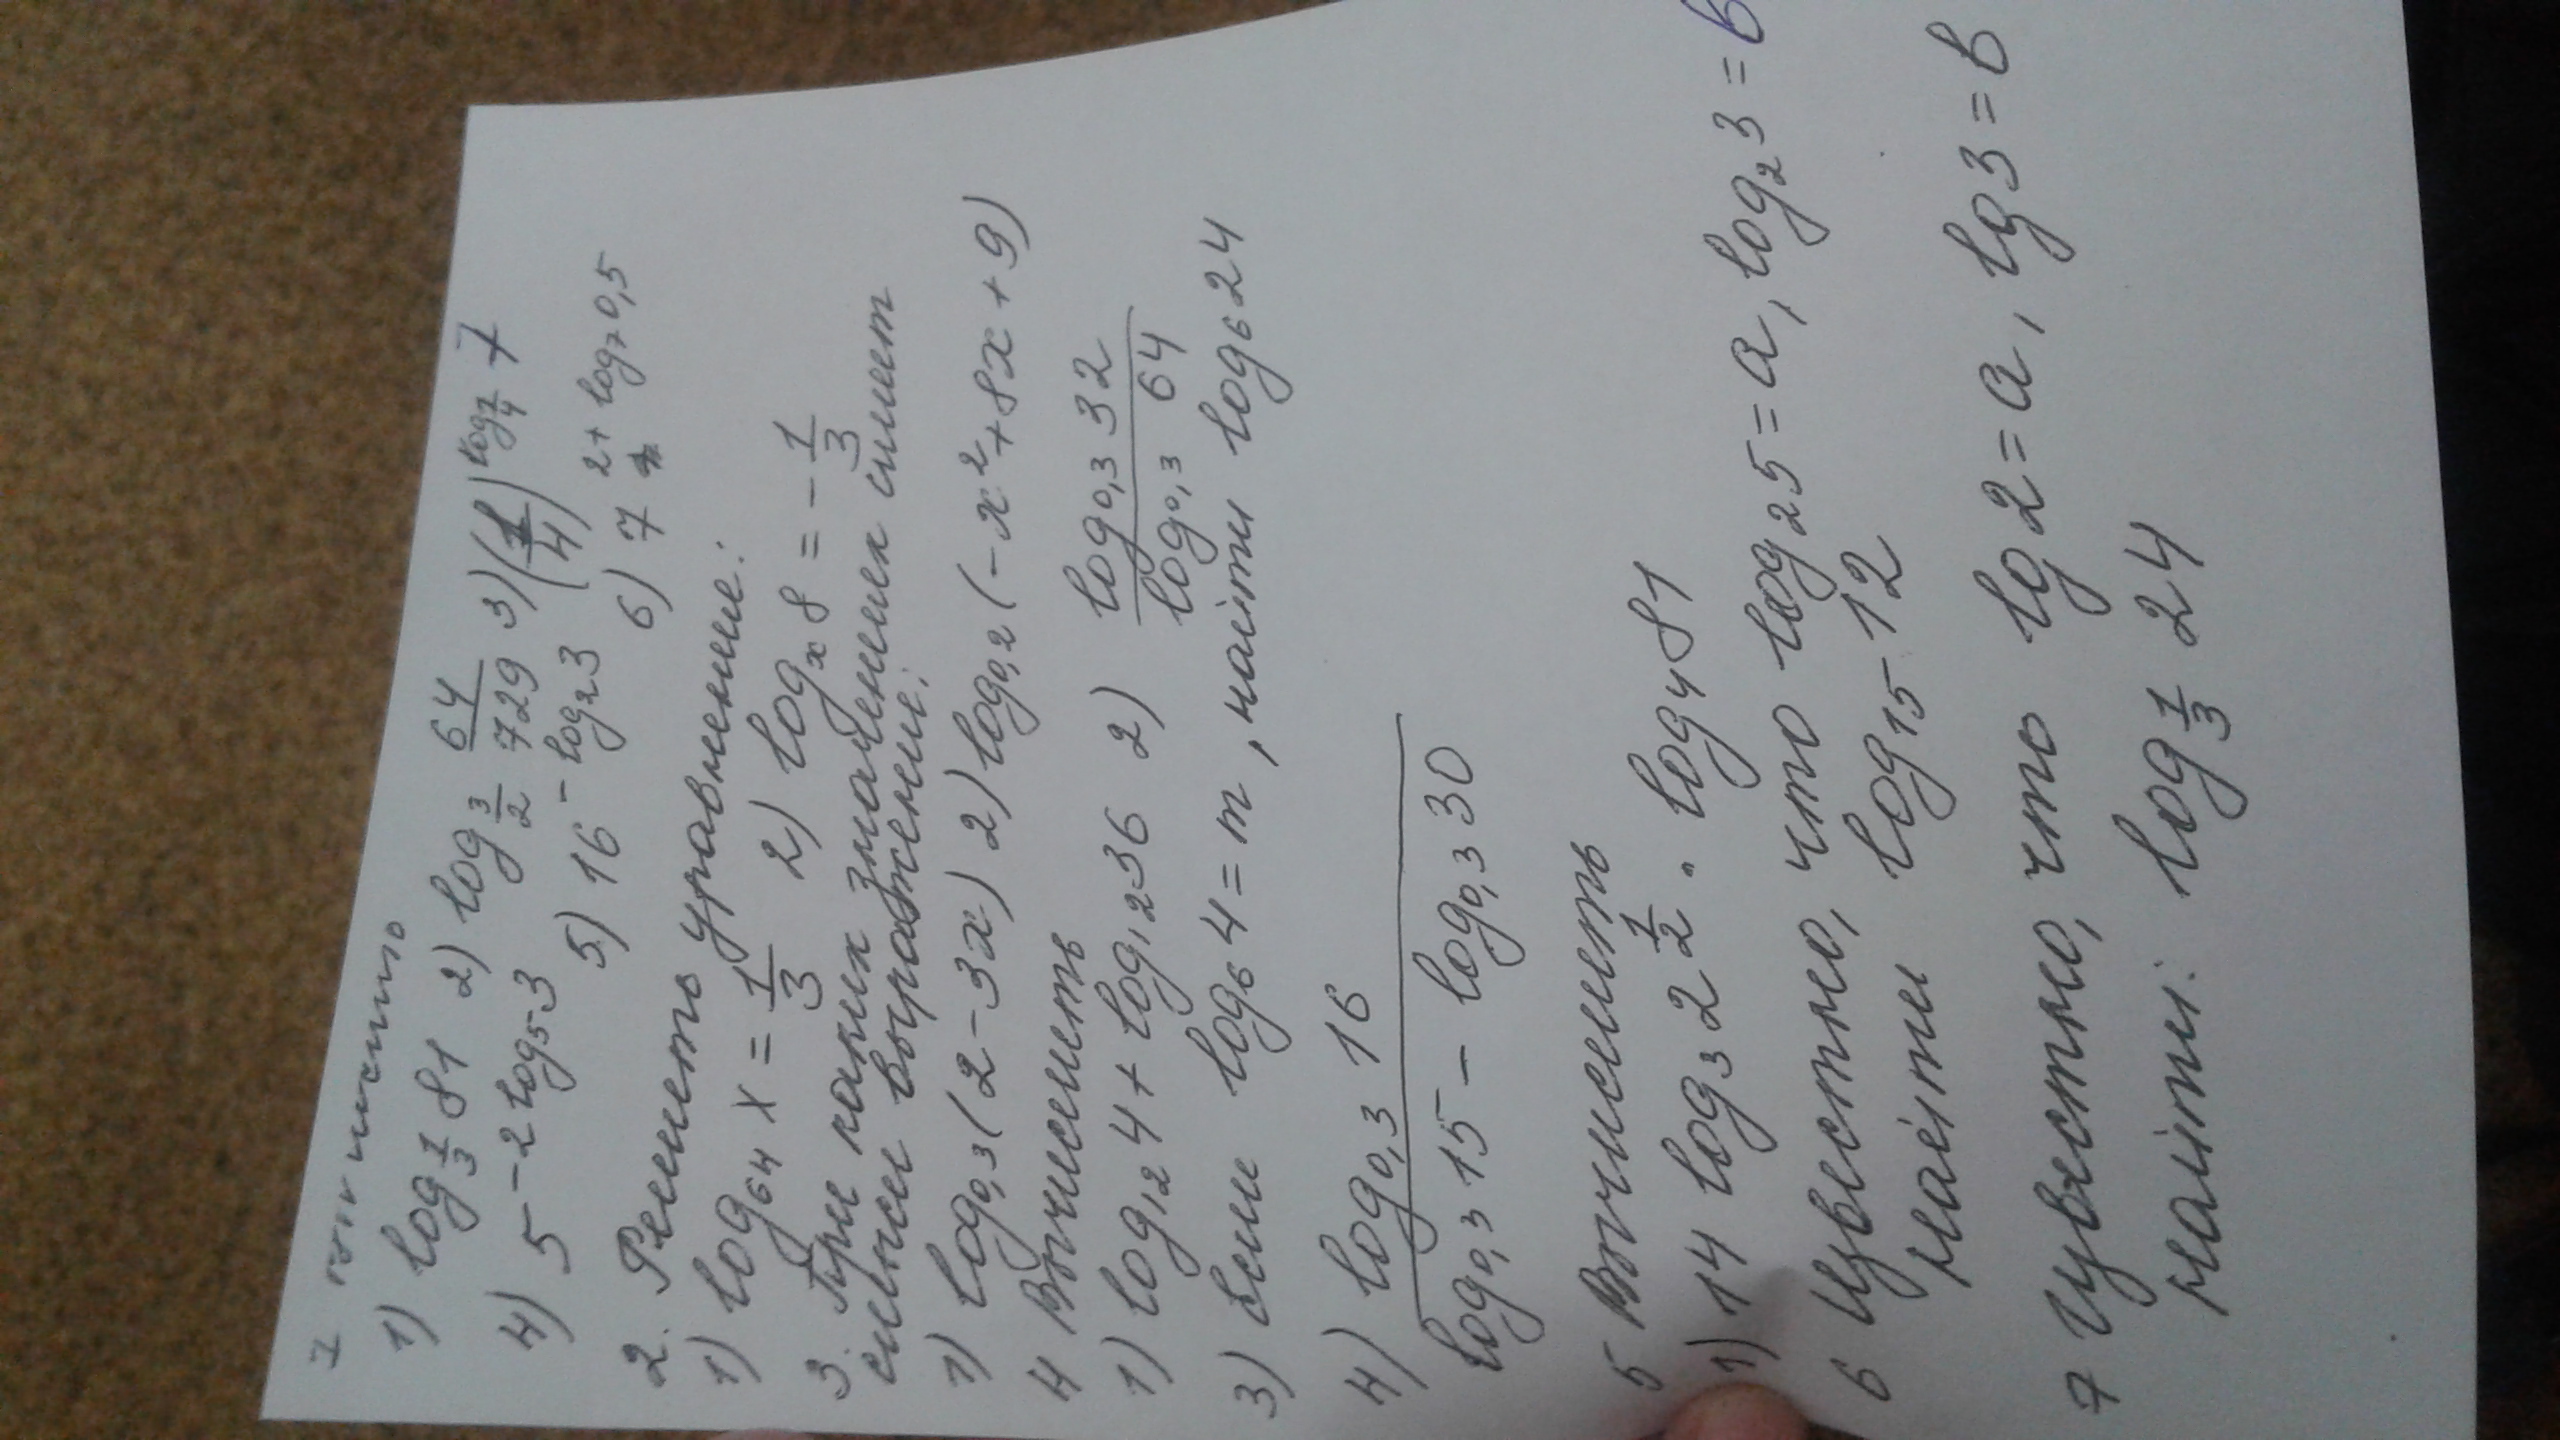 1
1) log 1/3 81 2) log 3/2 64/729 3) (1/4)^log 7/4 7
4) 5^-2 log₅3 5) 16^-log₂3 6) 7^2+log₇0,5
2. Решить уравнение:
1) log₆₄ x = 1/3 2) logₓ 8 = -1/3
3. При каких значениях имеет
смысл выражение:
1) log₀,₃ (2-3x) 2) log₀,₂ (-x²+8x+9)
4 Вычислить
1) log₁₂4 + log₁₂36 2) log₀,₃ 32 / log₀,₃ 64
3) Если log₆4 = m, найти log₆24
4) log₀,₃ 16 / log₀,₃15 - log₀,₃30
5 Вычислить
1) 14 log₃ 2 1/2 · log₄ 81
6 Известно, что log₂5 = a, log₂3 = b
найти log₁₅ 12
7 Известно, что lg2 = a, lg3 = b
найти: log 1/3 24